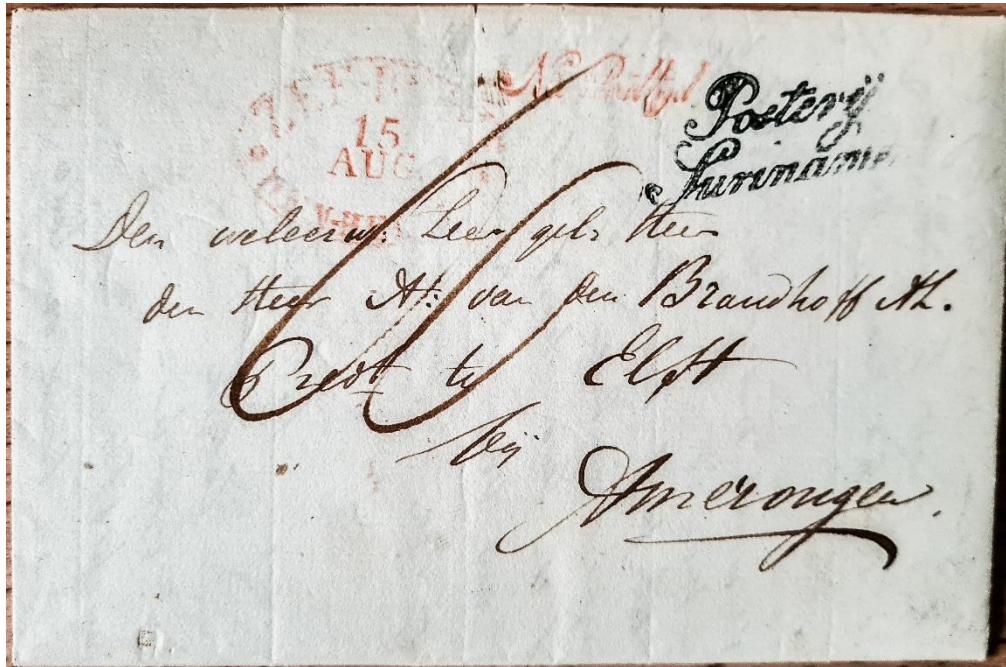 ZEEBRIEF
15
AUG
Na Posttijd
Posterij
Suriname
Den weleerw: Zeer gel: Heer
den Heer A: van den Brandhoff Az.
Predt te Elst
bij
Amerongen.